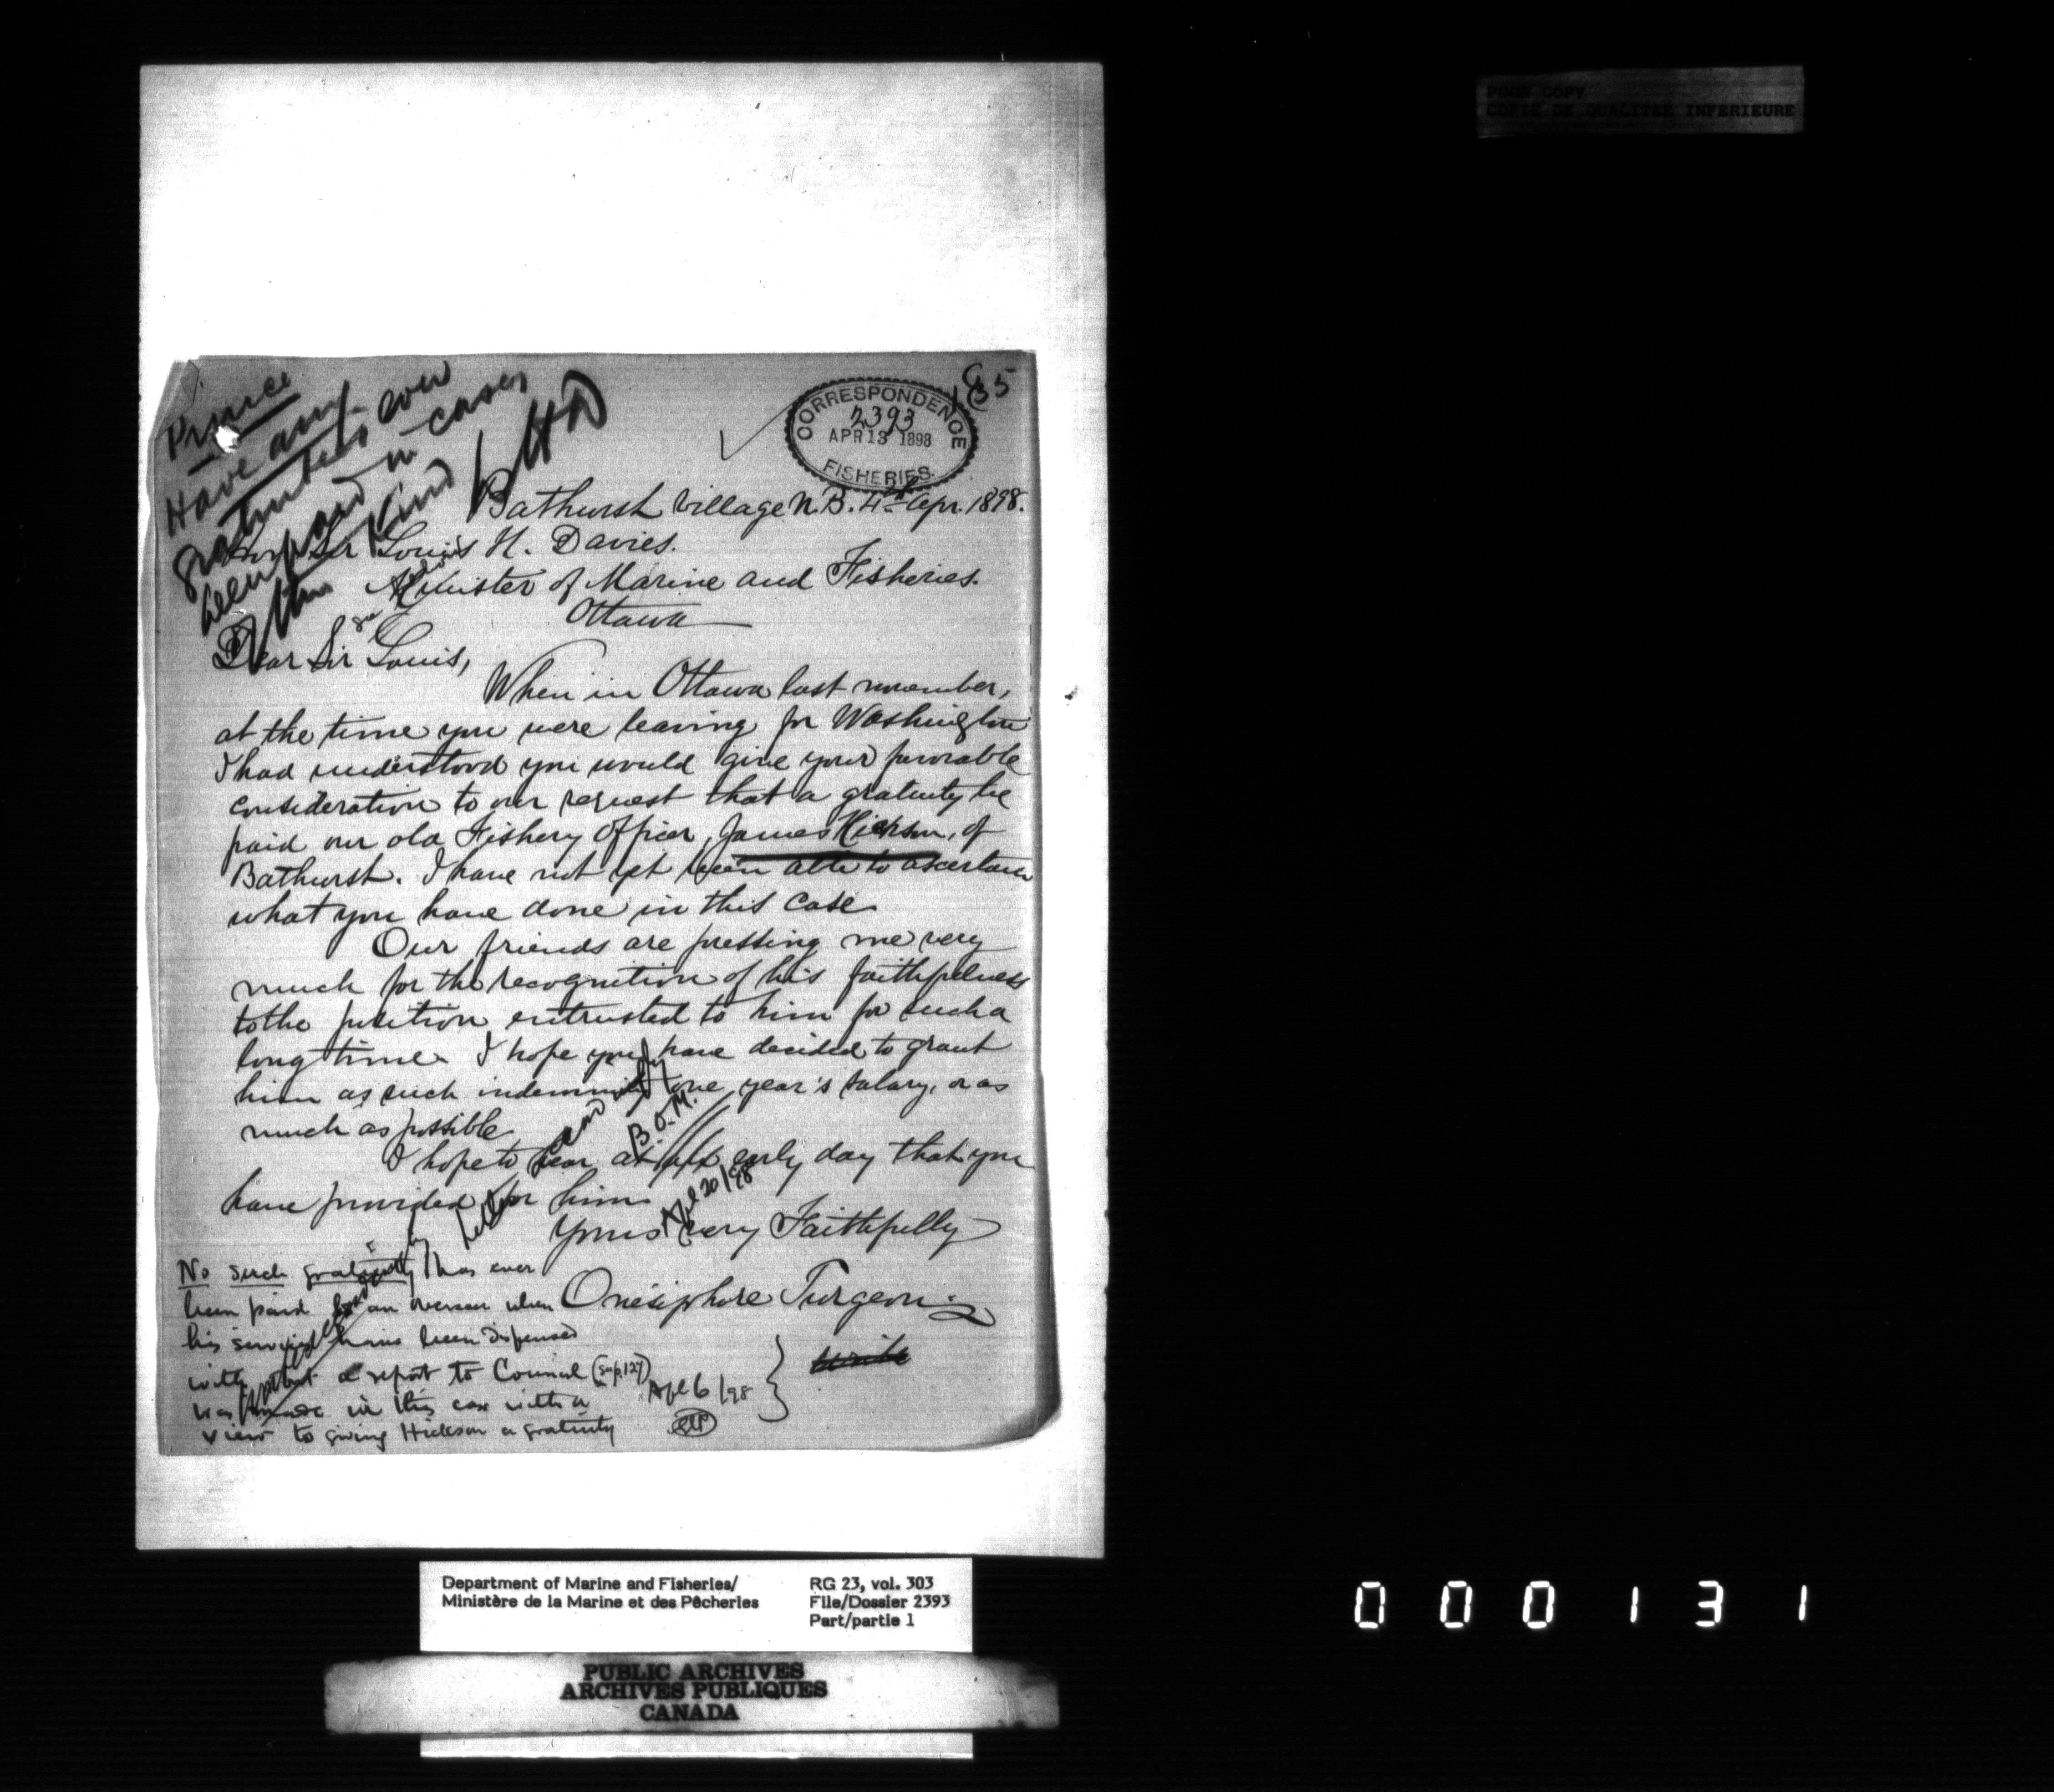 POOR COPY
COPIE DE QUALITEE INFERIEURE
Prince
Have any
gratuities ever
been paid in cases
of this kind LHD
135
CORRESPONDENCE
2393
APR 13 1898
FISHERIES.
Bathurst Village N.B. 4th Apr. 1898.
Hon Sir Louis H. Davies.
Minister of Marine and Fisheries.
Ottawa
Dear Sir Louis,
When in Ottawa last november,
at the time you were leaving for Washington
I had understood you would give your favorable
consideration to our request that a gratuity be
paid our old Fishery Officer, James Hickson, of
Bathurst. I have not yet been able to ascertain
what you have done in this case.
Our friends are pressing me very
much for the recognition of his faithfulness
to the position entrusted to him for such a
long time. I hope you have decided to grant
him as such indemnity one year's salary, or as
much as possible
I hope to hear at an early day that you
have provided for him.
Yours very Faithfully
Onésiphore Turgeon
No such gratuity has ever
been paid an overseer when
his services have been dispensed
with but a report to Council (sup. 127)
was made in this case with a
view to giving Hickson a gratuity
Apl 6/98
B.O.M.
Apl 20/98
Write
Department of Marine and Fisheries/
Ministère de la Marine et des Pêcheries
RG 23, vol. 303
File/Dossier 2393
Part/partie 1
PUBLIC ARCHIVES
ARCHIVES PUBLIQUES
CANADA
000131